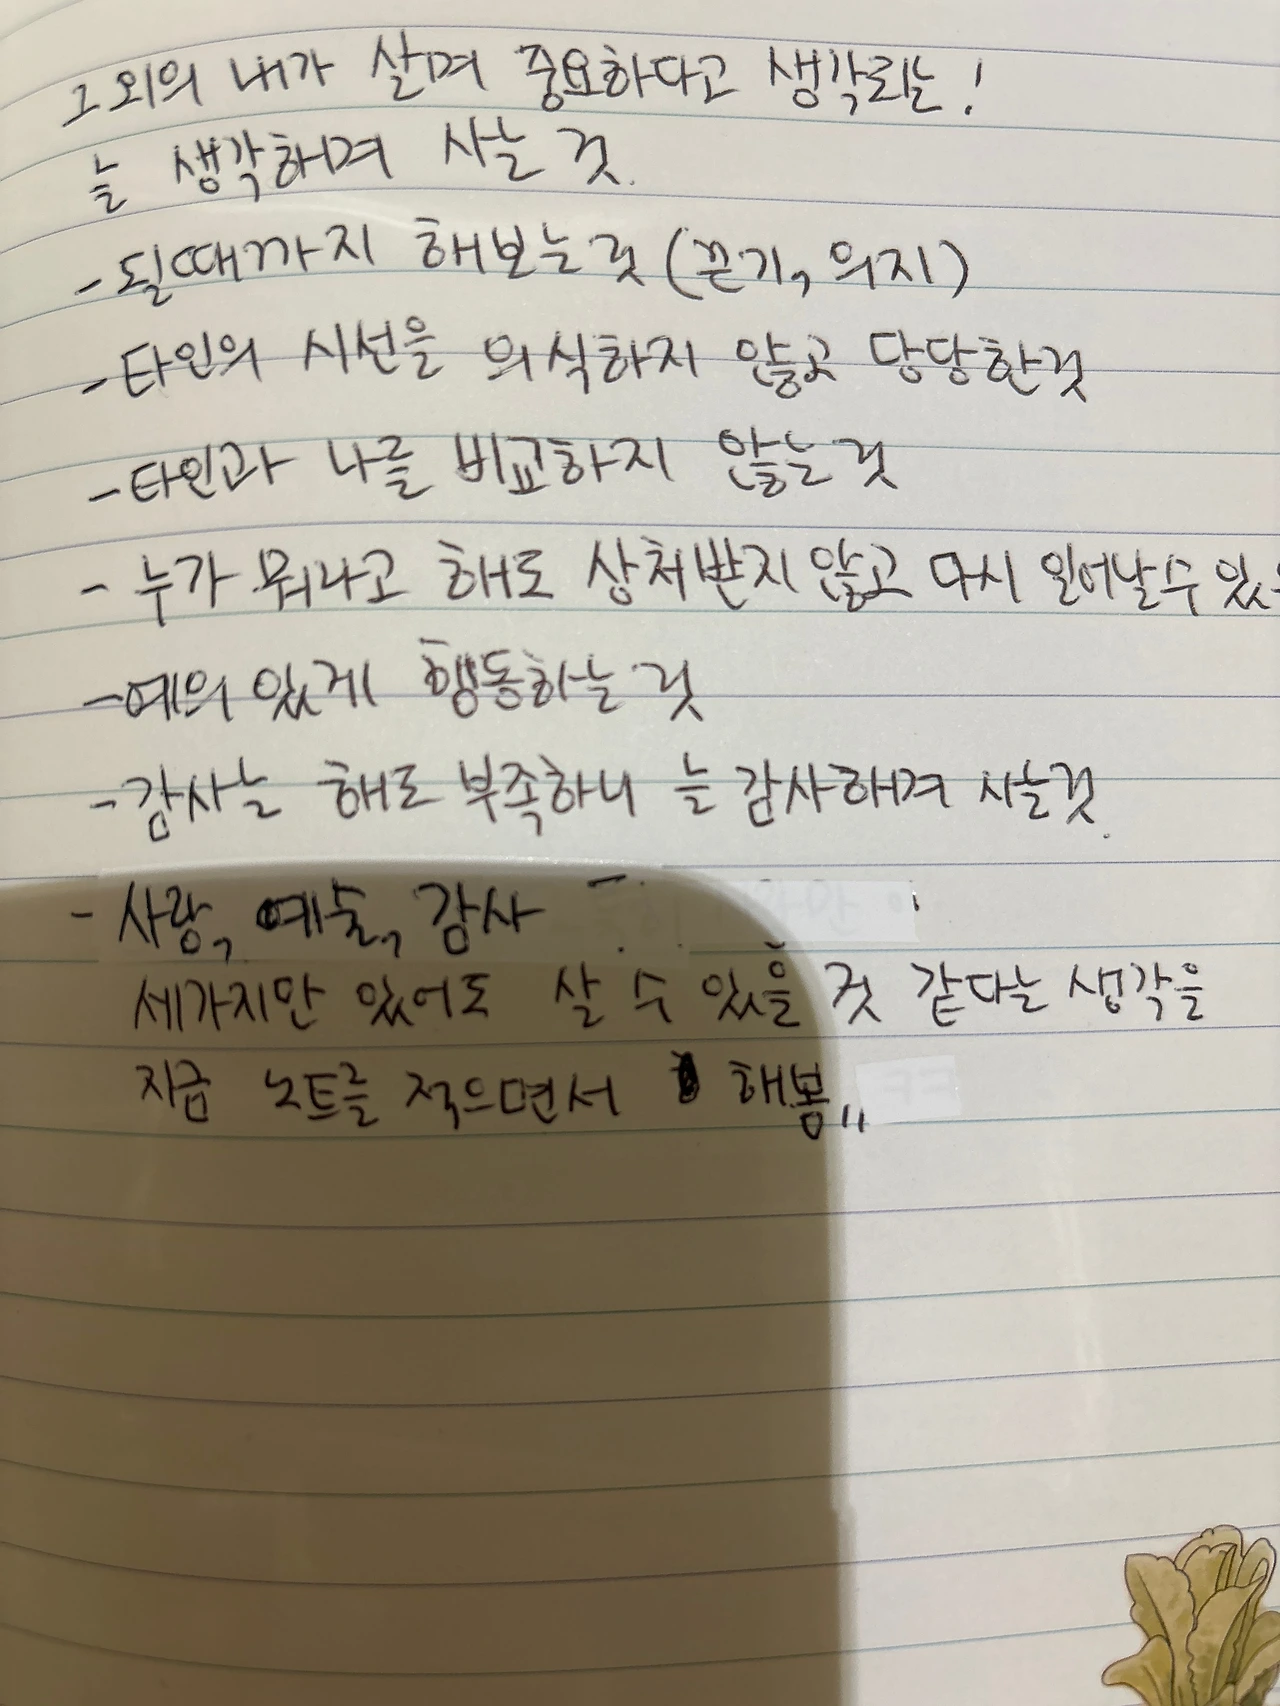 그외의 내가 살며 중요하다고 생각되는!
늘 생각하며 사는 것.
- 될때까지 해보는 것 (끈기, 의지)
- 타인의 시선을 의식하지 않고 당당한것
- 타인과 나를 비교하지 않는 것
- 누가 뭐라고 해도 상처받지 않고 다시 일어날수 있
- 예의 있게 행동하는 것
- 감사는 해도 부족하니 늘 감사해며 사는것.
- 사랑, 예술, 감사
세가지만 있어도 살 수 있을 것 같다는 생각을
지금 노트를 적으면서 해봄,,